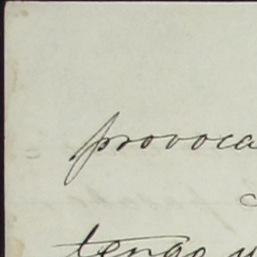 provoca
tengo